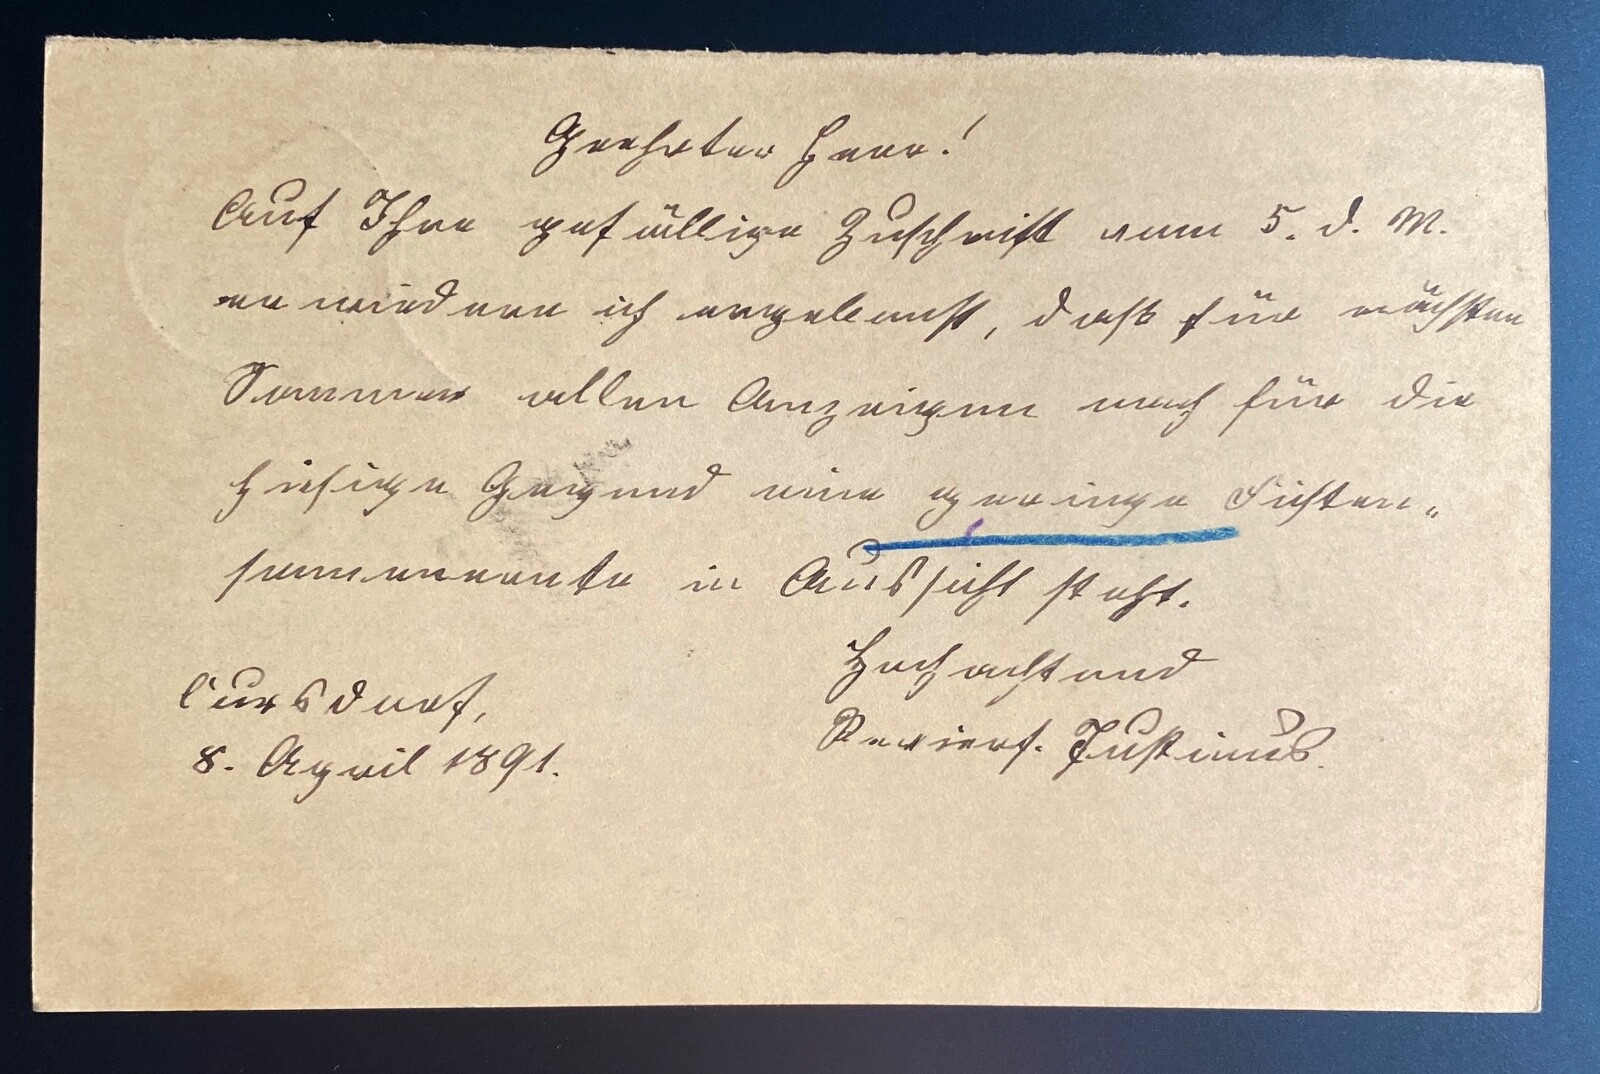 Geehrter Herr!
Auf Ihre gefällige Zuschrift vom 5. d. M.
erwiedere ich ergebenst, daß für nächsten
Sommer allen Anzeigen nach für die
hiesige Gegend eine geringe Fichten„
samenernte in Aussicht steht.
Hochachtend
Revierf. Justinus.
Cursdorf,
8. April 1891.